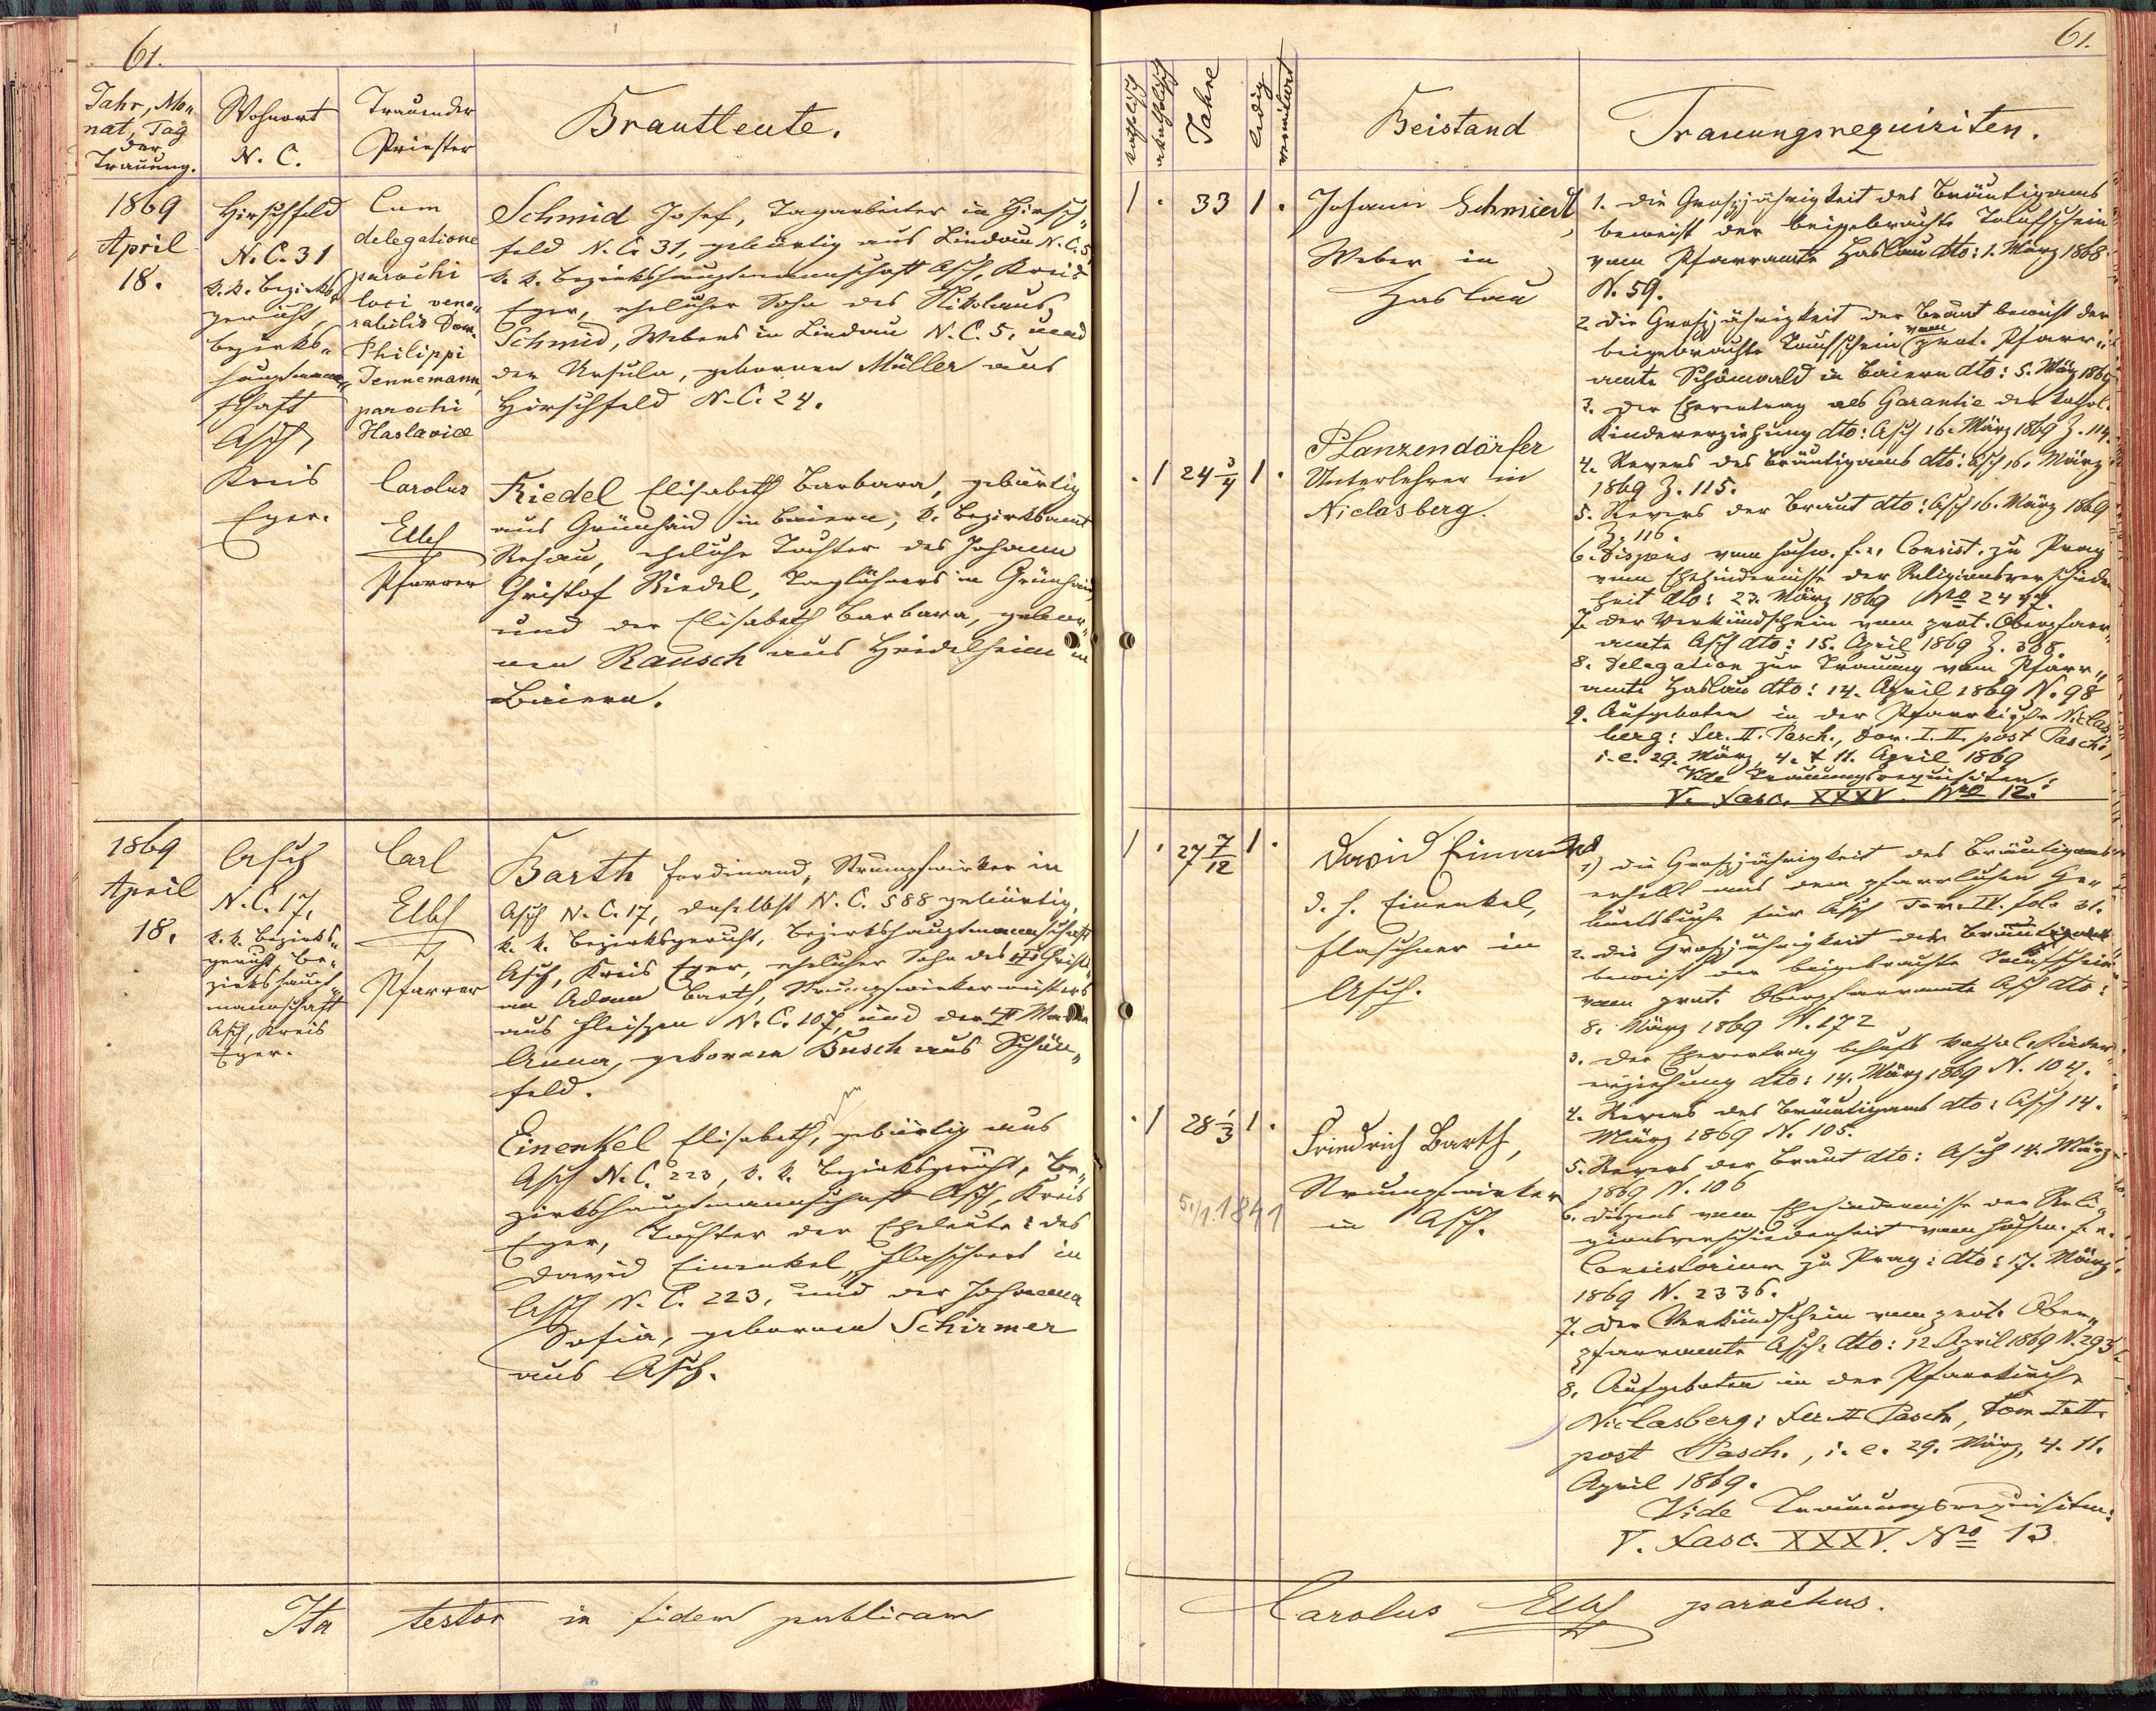 61.
Jahr, Mo-
nat, Tag
der
Trauung.
Wohnort
N. C.
Trauender
Priester
Brautleute.
1869
April
18.
Hirschfeld
N. C. 31
k. k. Bezirks-
gericht,
Bezirks-
hauptmann-
schaft
Asch,
Kreis
Eger.
Cum
delegatione
parochi
loci vene-
rabilis Dom.
Philippi
Tennemann,
parochi
Haslaviae
Carolus
Elbl
Pfarrer
Schmid Josef, Tagarbeiter in Hirsch-
feld N. C. 31, gebürtig aus Lindau N. C. 5,
k. k. Bezirkshauptmannschaft Asch, Kreis
Eger, ehelicher Sohn des Nikolaus
Schmid, Webers in Lindau N. C. 5, und
der Ursula, gebornen Müller aus
Hirschfeld N. C. 24.
Riedel Elisabeth Barbara, gebürtig
aus Grünhaid in Baiern, k. Bezirksamt
Rehau, eheliche Tochter des Johann
Christof Riedel, Taglöhners in Grünhaid,
und der Elisabeth Barbara, gebor-
nen Rausch aus Heidelheim in
Baiern.
1869
April
18.
Asch
N. C. 17,
k. k. Bezirks-
gericht Be-
zirkshaupt-
mannschaft
Asch, Kreis
Eger.
Carl
Elbl
Pfarrer
Barth Ferdinand, Strumpfwirker in
Asch N. C. 17, daselbst N. C. 588 gebürtig,
k. k. Bezirksgericht, Bezirkshauptmannschaft
Asch, Kreis Eger, ehelicher Sohn des Christi-
an Adam Barth, Strumpfwirkermeisters
aus Fleißen N. C. 107, und der
Anna, gebornen Busch aus Schön-
feld.
Einenkel Elisabeth, gebürtig aus
Asch N. C. 223, k. k. Bezirksgericht, Be-
zirkshauptmannschaft Asch, Kreis
Eger, Tochter der Eheleute: des
David Einenkel, Flaschners in
Asch N. C. 223, und der Johanna
Sofia, gebornen Schirmer
aus Asch.
Ita testor in fidem publicam
61.
katholisch
akatholisch
Jahre
ledig
verwitwet
Beistand
Trauungsrequisiten.
1 . 33 1 .
Johann Schmied,
Weber in
Haslau
. 1 24 3/4 1 .
Planzendörfer
Unterlehrer in
Niclasberg.
1. Die Großjährigkeit des Bräutigams
beweist der beigebrachte Taufschein
vom Pfarramte Haslau dto: 1. März 1868
N. 59.
2. Die Großjährigkeit der Braut beweist der
beigebrachte Taufschein vom prot. Pfarr-
amte Schönwald in Baiern dto: 5. März 1869
3. Der Ehevertrag als Garantie der kathol.
Kindererziehung dto: Asch 16. März 1869 Z. 114.
4. Revers des Bräutigams dto: Asch 16. März
1869 Z. 115.
5. Revers der Braut dto: Asch 16. März 1869
Z. 116.
6. Dispens vom hochw. f. e. Consist. zu Prag
vom Ehehindernisse der Religionsverschieden-
heit dto: 23. März 1869 Nro 2447.
7. Der Verkündschein vom prot. Oberpfarr-
amte Asch dto: 15. April 1869 Z. 308.
8. Delegation zur Trauung vom Pfarr-
amte Haslau dto: 14. April 1869 N. 98
9. Aufgeboten in der Pfarrkirche Niclas-
berg: Fer. II. Pasch., Dom. I. II. post Pascha,
i. e. 29. März, 4. & 11. April 1869
Vide Trauungsrequisiten:
V. Fasc. XXXV. Nro 12.
1 . 27 7/12 1 .
David Einenkel
d. h. Einenkel,
Flaschner in
Asch.
. 1 28 1/3 1 .
5./1. 1841
Friedrich Barth,
Strumpfwirker
in Asch.
1) Die Großjährigkeit des Bräutigams
erhellt aus dem pfarrlichen Ge-
burtsbuche für Asch Tom. IV. fol. 31.
2. Die Großjährigkeit der Braut
beweist der beigebrachte Taufschein
vom prot. Oberpfarramte Asch dto:
8. März 1869 N. 172
3. Der Ehevertrag behufs kathol. Kinder-
erziehung dto: 14. März 1869 N. 104.
4. Revers des Bräutigams dto: Asch 14.
März 1869 N. 105.
5. Revers der Braut dto: Asch 14. März
1869 N. 106
6. Dispens vom Ehehindernisse der Reli-
gionsverschiedenheit vom hochw. f. e.
Consistorium zu Prag: dto: 17. März
1869 N. 2336.
7. Der Verkündschein vom prot. Ober-
pfarramte Asch: dto: 12. April 1869 N. 293
8. Aufgeboten in der Pfarrkirche
Niclasberg: Fer. II Pasch., Dom I. II.
post Pasch., i. e. 29. März, 4. 11.
April 1869.
Vide Trauungsrequisiten:
V. Fasc. XXXV. Nro 13
Carolus Elbl parochus.